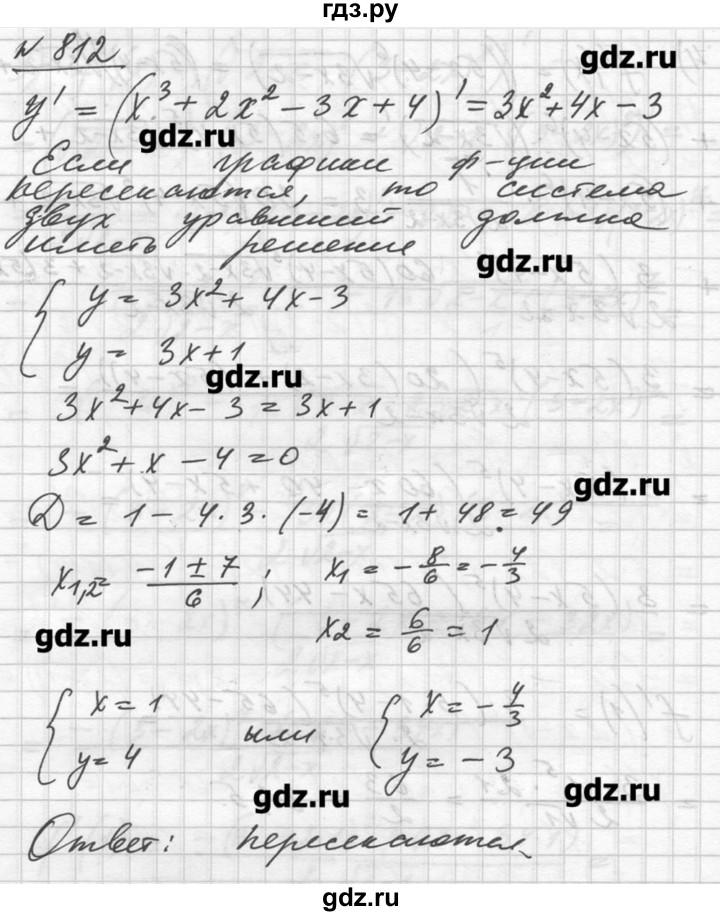 гдз.ру
N 812
gdz.ru
y' = (x³ + 2x² - 3x + 4)' = 3x² + 4x - 3
gdz.ru
Если графики ф-ции
пересекаются, то система
двух уравнений должна
иметь решение
gdz.ru
{ y = 3x² + 4x - 3
y = 3x + 1
gdz.ru
3x² + 4x - 3 = 3x + 1
3x² + x - 4 = 0
gdz.ru
D = 1 - 4 · 3 · (-4) = 1 + 48 = 49
x1,2 = (-1 ± 7)/6 ; x1 = -8/6 = -4/3
gdz.ru
x2 = 6/6 = 1
{ x = 1 или { x = -4/3
y = 4 y = -3
gdz.ru
gdz.ru
Ответ: пересекаются.
gdz.ru